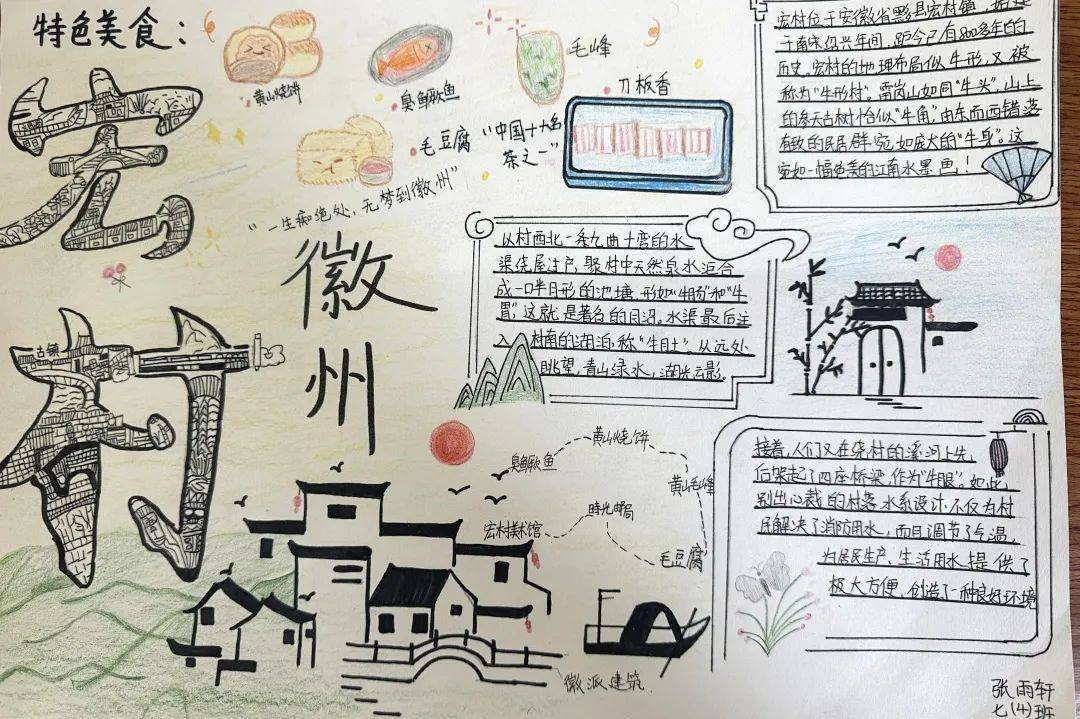 特色美食：
黄山烧饼
臭鳜鱼
毛峰
刀板香
毛豆腐
"中国十大名
茶之一"
"一生痴绝处，无梦到徽州"
宏
村
古镇
徽
州
宏村位于安徽省黟县宏村镇，始建
于南宋绍兴年间，距今已有800多年的
历史。宏村的地理布局似牛形，又被
称为"牛形村"。雷岗山如同"牛头"，山上
的参天古树恰似"牛角"，由东而西错落
有致的民居群宛如庞大的"牛身"。这
宛如一幅绝美的江南水墨画！
从村西北一条九曲十弯的水
渠绕屋过户，聚村中天然泉水汇合
成一口半月形的池塘，形如"牛肠"和"牛
胃"，这就是著名的月沼。水渠最后注
入村南的湖泊，称"牛肚"。从远处
眺望，青山绿水，湖光云影。
接着，人们又在绕村的溪河上先
后架起了四座桥梁，作为"牛眼"。如此
别出心裁的村落水系设计，不仅为村
民解决了消防用水，而且调节了气温，
为居民生产、生活用水提供了
极大方便，创造了一种良好环境
臭鳜鱼
黄山烧饼
黄山毛峰
時光邮局
宏村美术馆
毛豆腐
徽派建筑
张雨轩
七(4)班